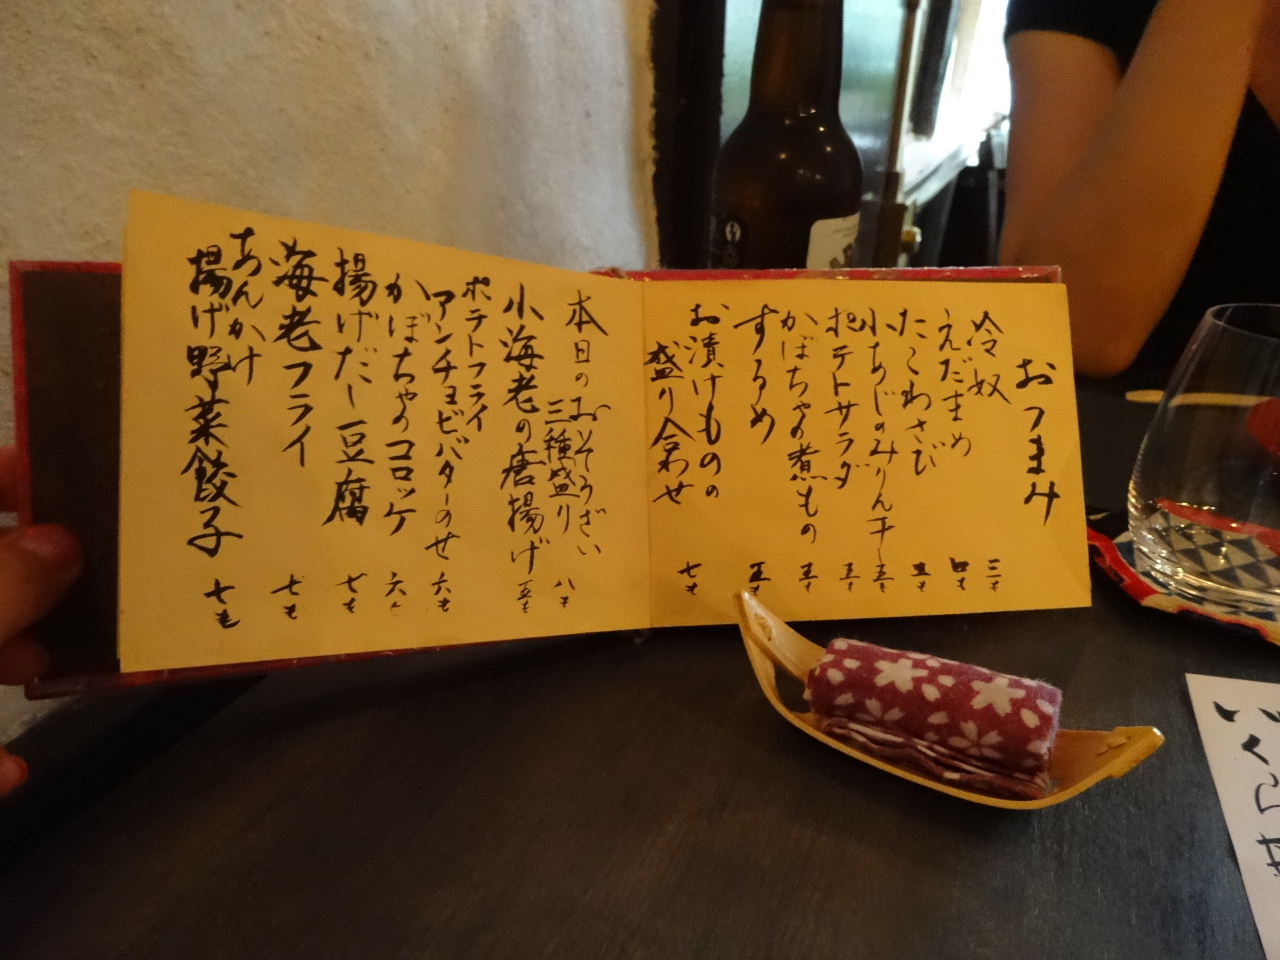 おつまみ
冷奴 三も
えだまめ 四も
たこわさび 五も
小あじのみりん干し 五も
ポテトサラダ 五も
かぼちゃの煮もの 五も
するめ 五も
お漬けものの
盛り合わせ 七も
本日のおそうざい
三種盛り 八も
小海老の唐揚げ 五も
ポテトフライ
アンチョビバターのせ 六も
かぼちゃのコロッケ 六も
揚げだし豆腐 七も
海老フライ 七も
あんかけ
揚げ野菜餃子 七も